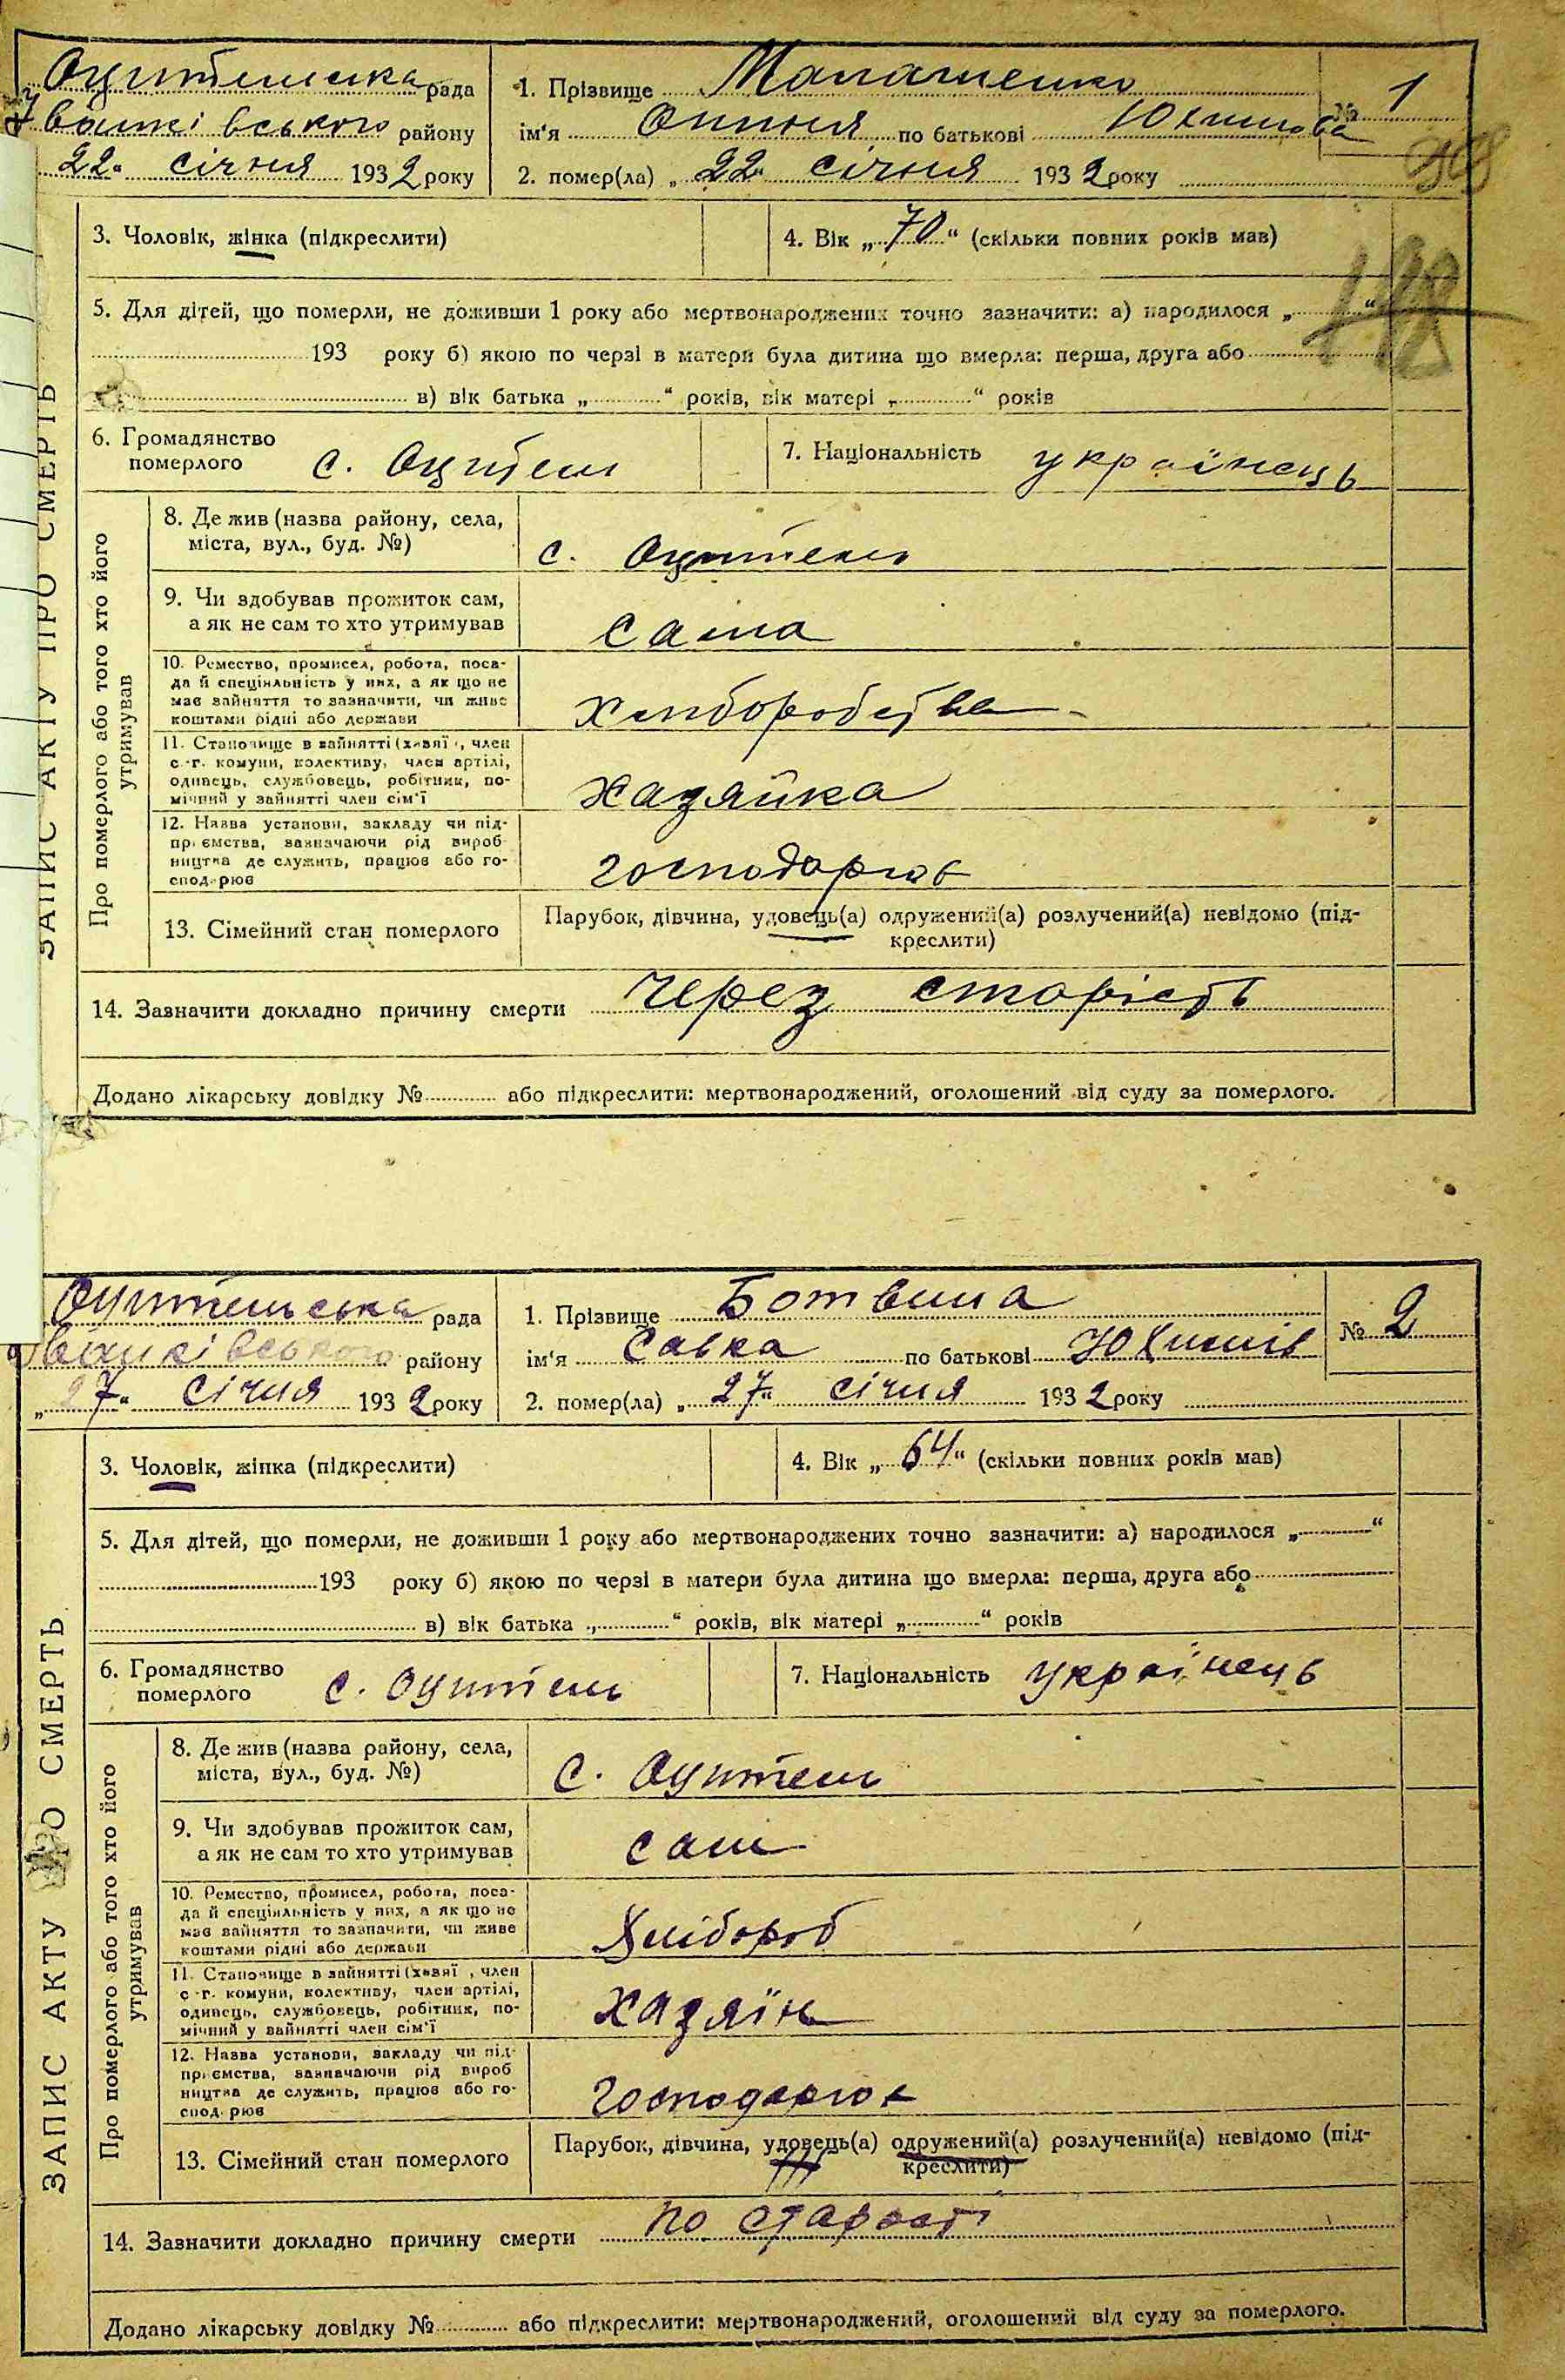 Оцительська рада
Іванківського району
22 січня 1932 року
1. Прізвище
№ 1
ім'я по батькові Юхимова
2. помер(ла) „22“ січня 1932 року
3. Чоловік, жінка (підкреслити)
4. Вік „70“ (скільки повних років мав)
5. Для дітей, що померли, не доживши 1 року або мертвонароджених точно зазначити: а) народилося „ “
193 року б) якою по черзі в матери була дитина що вмерла: перша, друга або
в) вік батька „ “ років, вік матері „ “ років
6. Громадянство
померлого
с. Оцитель
7. Національність українець
ЗАПИС АКТУ ПРО СМЕРТЬ
Про померлого або того хто його
утримував
8. Де жив (назва району, села,
міста, вул., буд. №)
с. Оцитель
9. Чи здобував прожиток сам,
а як не сам то хто утримував
сама
10. Ремество, промисел, робота, поса-
да й спеціяльність у них, а як що не
має зайняття то зазначити, чи живе
коштами рідні або держави
11. Становище в зайнятті (хазяї , член
с.-г. комуни, колективу, член артілі,
одинець, службовець, робітник, по-
мічний у зайнятті член сім'ї
хазяйка
12. Назва установи, закладу чи під-
приємства, зазначаючи рід вироб
ництва де служить, працює або го-
спод рює
господарює
13. Сімейний стан померлого
Парубок, дівчина, удовець(а) одружений(а) розлучений(а) невідомо (під-
креслити)
14. Зазначити докладно причину смерти через старість
Додано лікарську довідку № або підкреслити: мертвонароджений, оголошений від суду за померлого.
Оцительська рада
Іванківського району
„27“ січня 1932 року
1. Прізвище Ботвина
№ 2
ім'я Савка по батькові Юхимів
2. помер(ла) „27“ січня 1932 року
3. Чоловік, жінка (підкреслити)
4. Вік „64“ (скільки повних років мав)
5. Для дітей, що померли, не доживши 1 року або мертвонароджених точно зазначити: а) народилося „ “
193 року б) якою по черзі в матери була дитина що вмерла: перша, друга або
в) вік батька „ “ років, вік матері „ “ років
6. Громадянство
померлого
с. Оцитель
7. Національність українець
ЗАПИС АКТУ ПРО СМЕРТЬ
Про померлого або того хто його
утримував
8. Де жив (назва району, села,
міста, вул., буд. №)
с. Оцитель
9. Чи здобував прожиток сам,
а як не сам то хто утримував
сам
10. Ремество, промисел, робота, поса-
да й спеціяльність у них, а як що не
має зайняття то зазначити, чи живе
коштами рідні або держави
Хлібороб
11. Становище в зайнятті (хазяї , член
с.-г. комуни, колективу, член артілі,
одинець, службовець, робітник, по-
мічний у зайнятті член сім'ї
хазяїн
12. Назва установи, закладу чи під-
приємства, зазначаючи рід вироб
ництва де служить, працює або го-
спод рює
господарює
13. Сімейний стан померлого
Парубок, дівчина, удовець(а) одружений(а) розлучений(а) невідомо (під-
креслити)
14. Зазначити докладно причину смерти по старості
Додано лікарську довідку № або підкреслити: мертвонароджений, оголошений від суду за померлого.